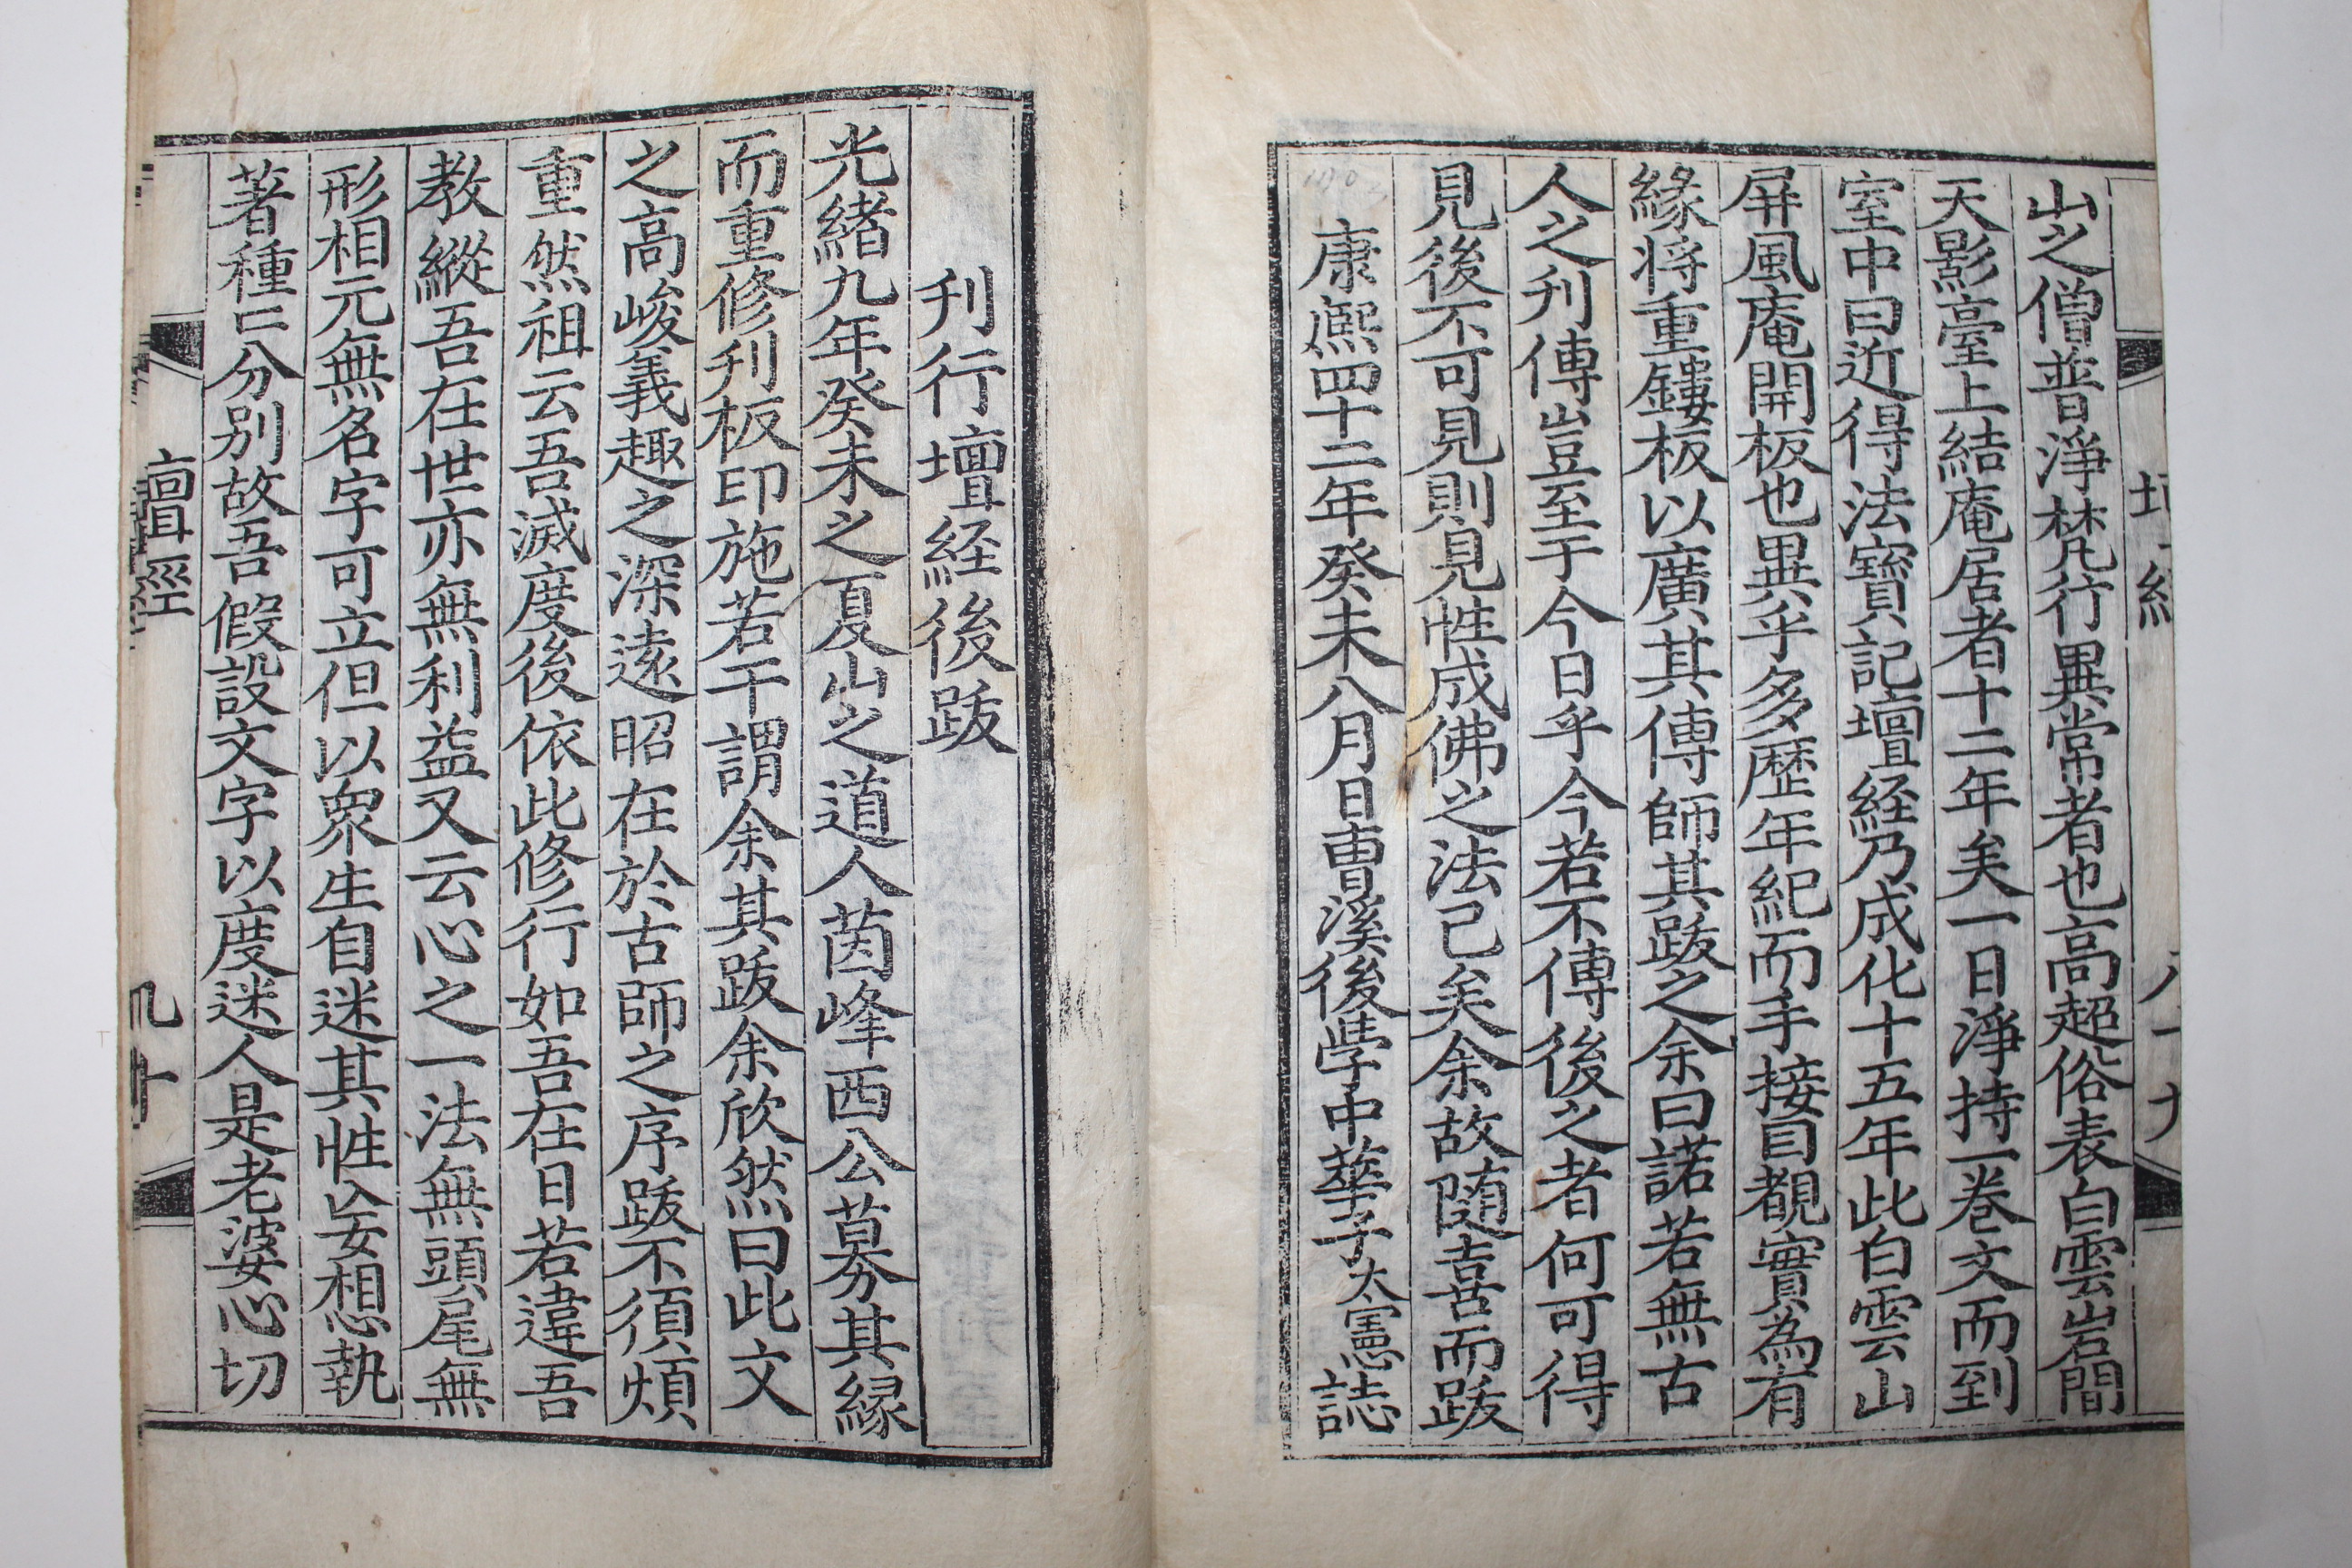 山之僧普淨梵行異常者也高超俗表白雲岩間
天影臺上結庵居者十二年矣一日淨持一卷文而到
室中曰近得法寶記壇経乃成化十五年此白雲山
屏風庵開板也異乎多歷年紀而手接目覩實為有
緣将重鏤板以廣其傳師其跋之余曰諾若無古
人之刋傳豈至于今日乎今若不傳後之者何可得
見後不可見則見性成佛之法已矣余故随喜而跋
康熈四十二年癸未八月日曺溪後學中華子太憲誌
壇經
八十九
刋行壇経後跋
光緒九年癸未之夏山之道人茵峰西公募其縁
而重修刋板印施若干謂余其跋余欣然曰此文
之高峻義趣之深遠昭在於古師之序跋不須煩
重然祖云吾滅度後依此修行如吾在日若違吾
教縱吾在世亦無利益又云心之一法無頭尾無
形相元無名字可立但以衆生自迷其性妄想執
著種〻分別故吾假設文字以度迷人是老婆心切
壇經
九十